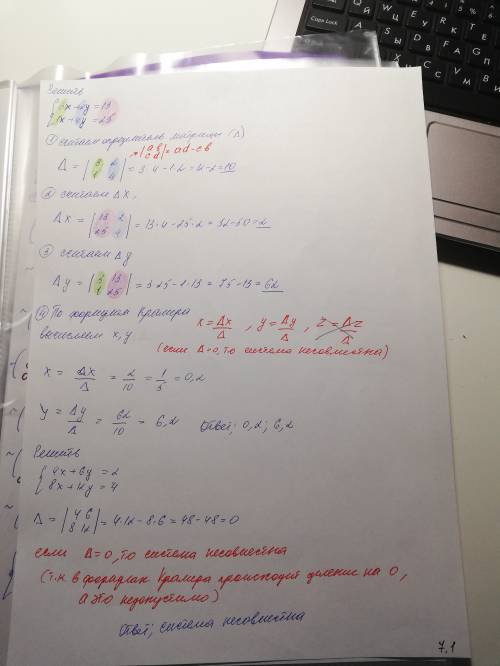 Решить
{3x+2y=13
{1x+4y=25
① считаем определитель матрицы (Δ)
→|a b c d| = ad-cb
Δ = |3 2 1 4| = 3·4-1·2=12-2=10
② считаем Δx.
Δx = |13 2 25 4| = 13·4-25·2=52-50=2
③ считаем Δy
Δy = |3 13 1 25| = 3·25-1·13=75-13=62
④ По формулам Крамера
вычисляем x, y
x = Δx/Δ , y = Δy/Δ , z = Δz/Δ
(если Δ=0, то система несовместна)
x = Δx/Δ = 2/10 = 1/5 = 0,2
y = Δy/Δ = 62/10 = 6,2 Ответ; 0,2; 6,2
Решить
{4x+6y=2
{8x+12y=4
Δ = |4 6 8 12| = 4·12-8·6=48-48=0
если Δ=0, то система несовместна
(т.к. в формулах Крамера происходит деление на 0,
а это недопустимо)
Ответ; система несовместна
7.1
Caps Lock